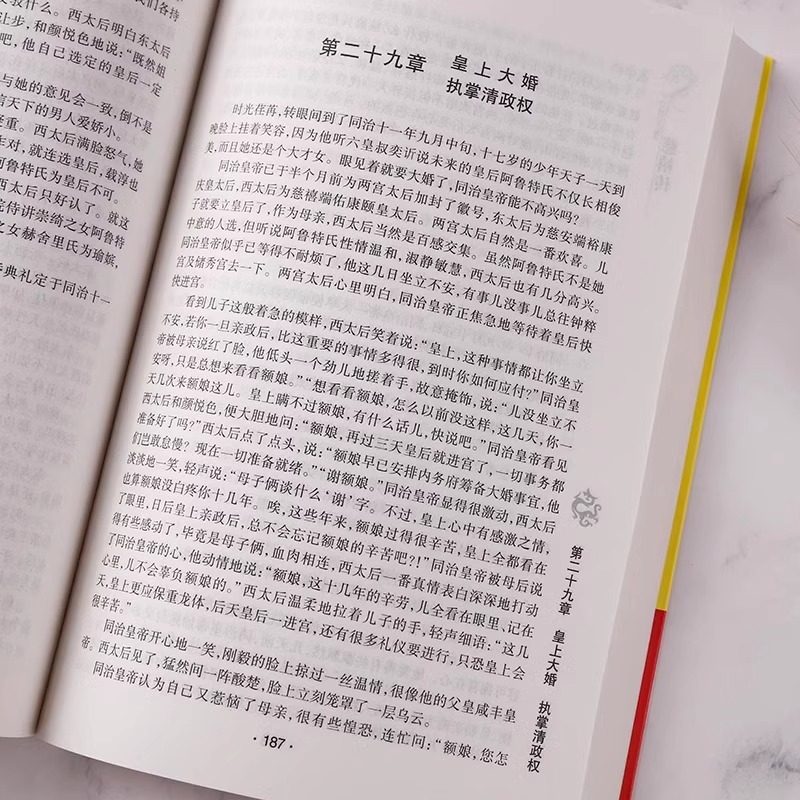 我们各持
西太后明白东太后
让步，和颜悦色地说：“既然姐
吧，他自己选定的皇后一定
与她的意见会一致，倒不是
信天下的男人爱娇小。
西太后满脸怒气，她
作对，就连选皇后，载淳也
阿鲁特氏为皇后不可。
西太后只好认了。就这
院侍讲崇绮之女阿鲁特
之女赫舍里氏为瑜嫔，
典礼定于同治十一
第二十九章 皇上大婚
执掌清政权
时光荏苒，转眼间到了同治十一年九月中旬，十七岁的少年天子一天到
晚脸上挂着笑容，因为他听六皇叔奕诉说未来的皇后阿鲁特氏不仅长相俊
美，而且她还是个大才女。眼见着就要大婚了，同治皇帝能不高兴吗？
同治皇帝已于半个月前为两宫太后加封了徽号，东太后为慈安端裕康
庆皇太后，西太后为慈禧端佑康颐皇太后。两宫太后自然是一番欢喜。儿
子就要立皇后了，作为母亲，西太后当然是百感交集。虽然阿鲁特氏不是她
中意的人选，但听说阿鲁特氏性情温和，淑静敏慧，西太后也有几分高兴。
同治皇帝似乎已等得不耐烦了，他这几日坐立不安，有事儿没事儿总往钟粹
宫及储秀宫去一下。两宫太后心里明白，同治皇帝正焦急地等待着皇后快
快进宫。
看到儿子这般着急的模样，西太后笑着说：“皇上，这种事情都让你坐立
不安，若你一旦亲政后，比这重要的事情多得很，到时你如何应付？”同治皇
帝被母亲说红了脸，他低头一个劲儿地搓着手，故意掩饰，说：“儿没坐立不
安呀，只是总想来看看额娘。”“想看看额娘，怎么以前没这样，这几天，你一
天几次来额娘这儿。皇上瞒不过额娘，有什么话儿，快说吧。”同治皇帝看见
西太后和颜悦色，便大胆地问：“额娘，再过三天皇后就进宫了，一切事务都
准备好了吗？”西太后点了点头，说：“额娘早已安排内务府筹备大婚事宜，他
们岂敢怠慢？现在一切准备就绪。”“谢额娘。”同治皇帝显得很激动，西太后
淡淡地一笑，轻声说：“母子俩谈什么‘谢’字。不过，皇上心中有感激之情，
也算额娘没白疼你十几年。唉，这些年来，额娘过得很辛苦，皇上全都看在
了眼里，日后皇上亲政后，总不会忘记额娘的辛苦吧？！”同治皇帝被母后说
得有些感动了，毕竟是母子俩，血肉相连，西太后一番真情表白深深地打动
了同治皇帝的心，他动情地说：“额娘，这十几年的辛劳，儿全看在眼里、记在
心里，儿不会辜负额娘的。”西太后温柔地拉着儿子的手，轻声细语：“这几
天，皇上更应保重龙体，后天皇后一进宫，还有很多礼仪要进行，只恐皇上会
很辛苦。”
同治皇帝开心地一笑，刚毅的脸上掠过一丝温情，很像他的父皇咸丰皇
帝。西太后见了，猛然间一阵酸楚，脸上立刻笼罩了一层乌云。
同治皇帝认为自己又惹恼了母亲，很有些惶恐，连忙问：“额娘，您怎
·187·
第二十九章 皇上大婚 执掌清政权